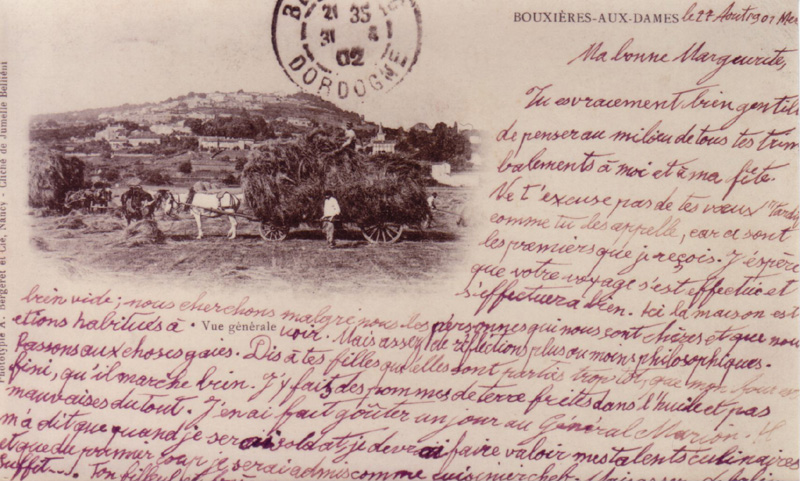 BOUXIÈRES-AUX-DAMES le 27 Août 1901
Ma bonne Marguerite,
Tu es vraiement bien gentille
de penser au milieu de tous tes trim
balements à moi et à ma fête.
Ne t'excuse pas de tes vœux "tardifs
comme tu les appelle, car ce sont
les premiers que je reçois. J'éspère
que votre voyage s'est effectué et
s'effectuera bien. Ici la maison est
bien vide; nous cherchons malgré nous les personnes qui nous sont chères et que nous
etions habitués à voir. Mais assez de réflections plus ou moins philosophiques.
Passons aux choses gaies. Dis à tes filles qu'elles sont parties trop tôt, que mon four est
fini, qu'il marche bien. J'y fais des pommes de terre frites dans l'huile et pas
mauvaises du tout. J'en ai fait goûter un jour au Général Marion. Il
m'a dit que quand je serais soldat je devrai faire valoir mes talents culinaires
et que du premier coup je serai admis comme cuisinier chef. Mais assez
suffit.... Ton filleul
Vue générale
Phototype A. Bergeret et Cie, Nancy - Cliché de Jumelle Bellieni
21 35
31 8
02
DORDOGNE